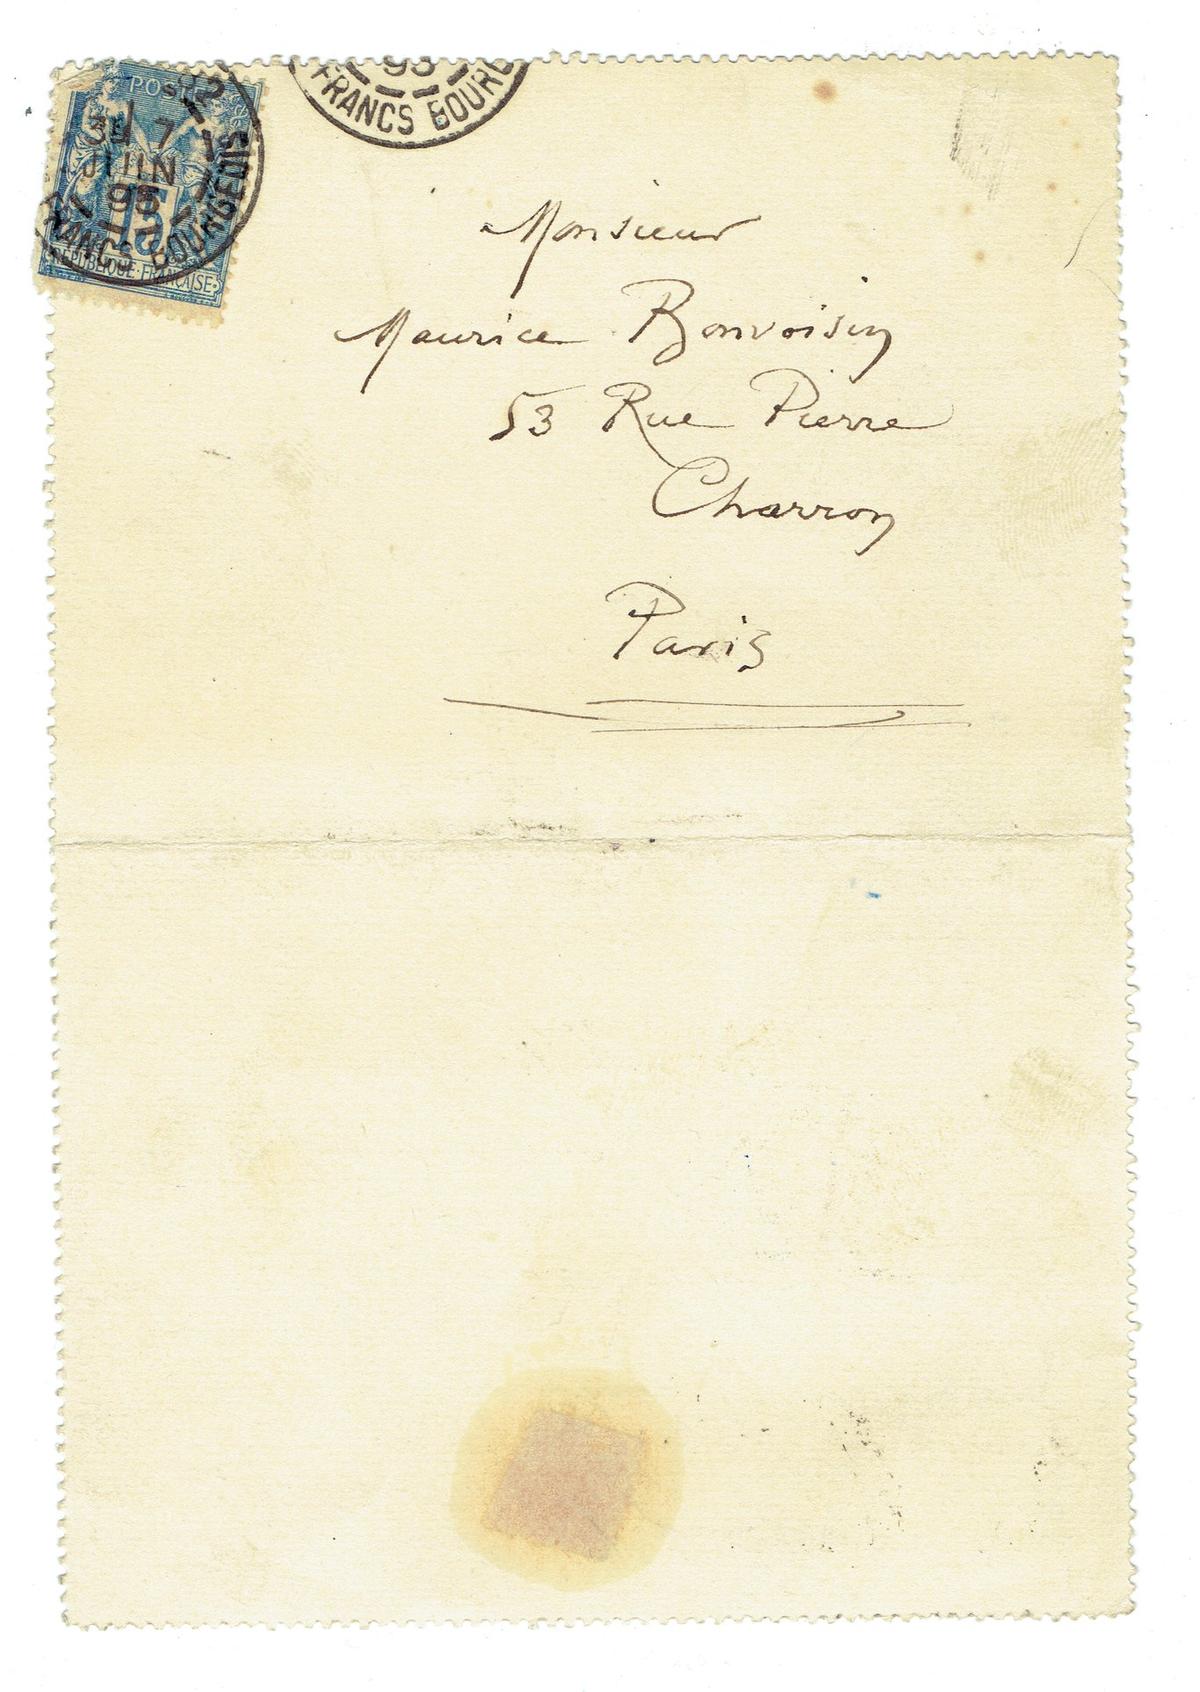 POSTE
15
REPUBLIQUE · FRANÇAISE
7
JUIN
95
FRANCS BOURGEOIS
FRANCS BOURG
Monsieur
Maurice Bonvoisin
53 Rue Pierre
Charron
Paris